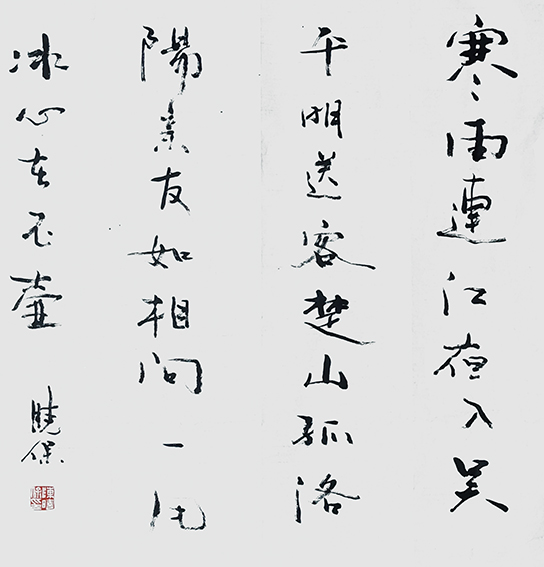 寒雨連江夜入吴
平明送客楚山孤洛
陽亲友如相问一片
冰心在玉壺
曉保